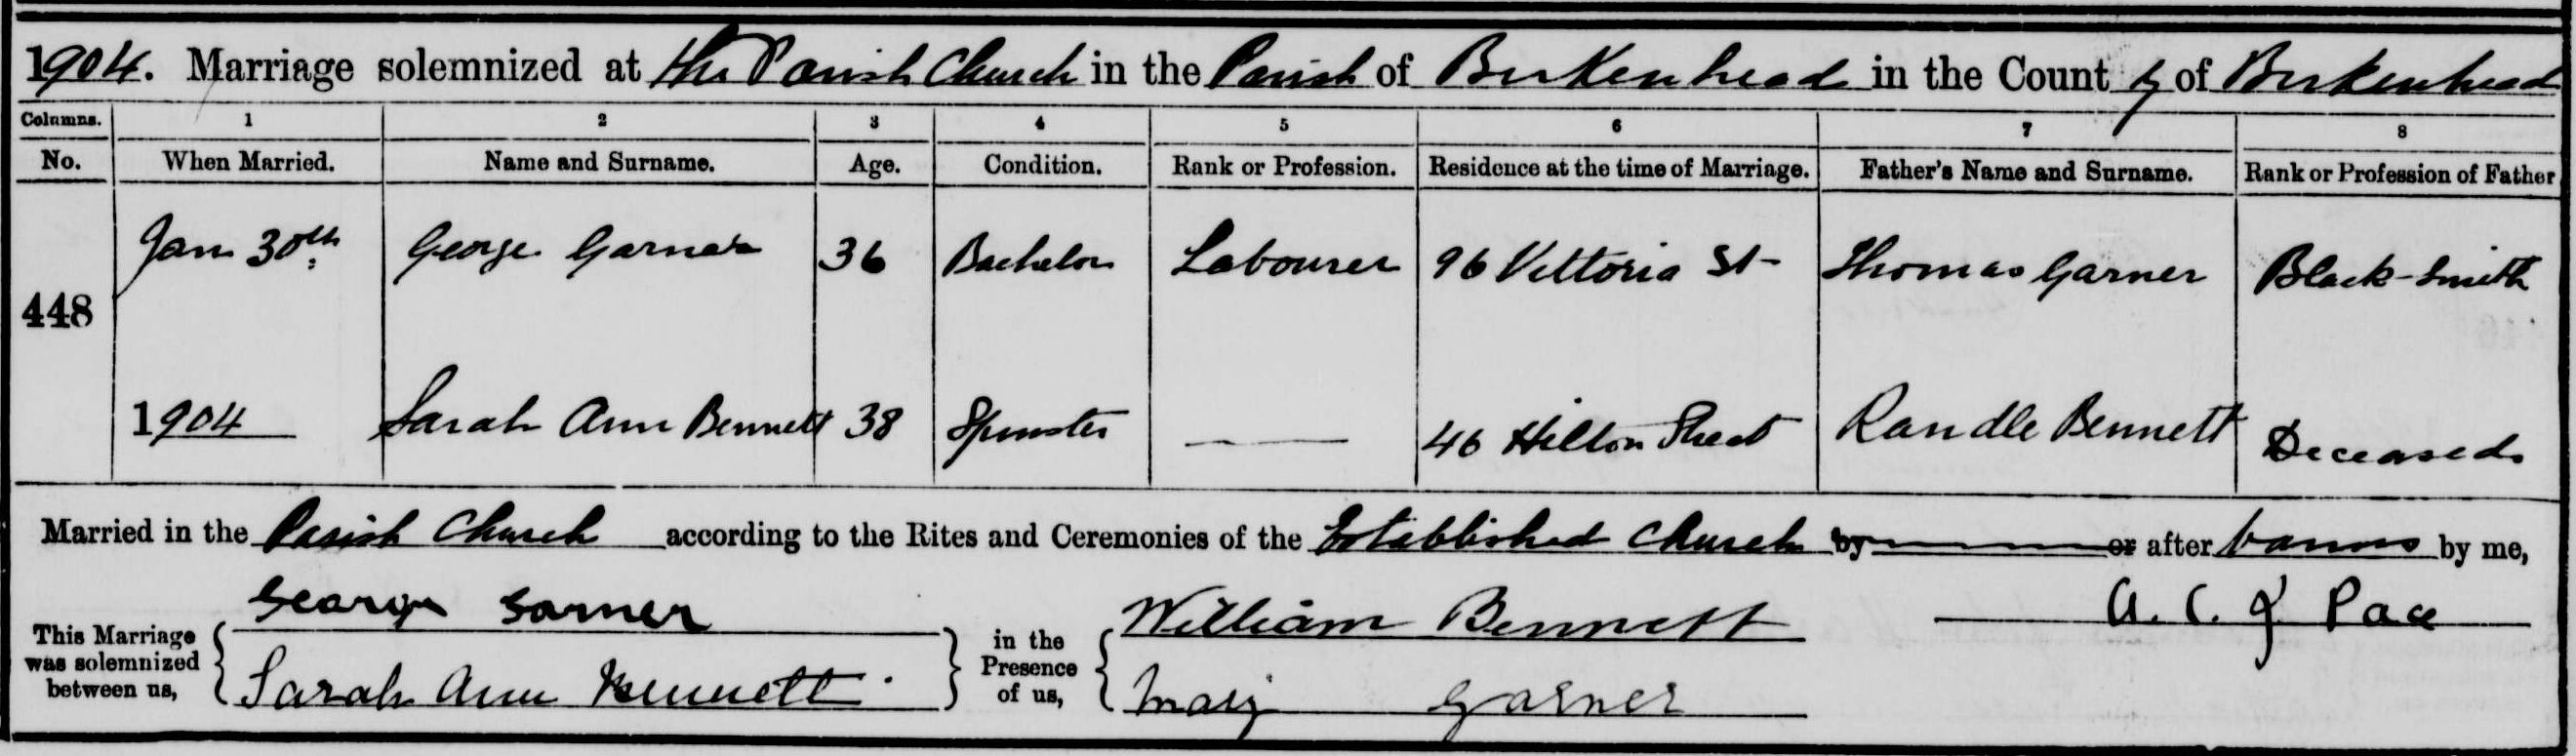 1904. Marriage solemnized at the Parish Church in the Parish of Birkenhead in the County of Birkenhead
Columns. 1 2 3 4 5 6 7 8
No. When Married. Name and Surname. Age. Condition. Rank or Profession. Residence at the time of Marriage. Father's Name and Surname. Rank or Profession of Father
Jan 30th George Garner 36 Bachelor Labourer 96 Vittoria St Thomas Garner Black-Smith
448
1904 Sarah Ann Bennett 38 Spinster 46 Hilton Street Randle Bennett Deceased
Married in the Parish Church according to the Rites and Ceremonies of the Established Church by or after banns by me,
George Garner William Bennett A. C. J Pace
This Marriage was solemnized between us, in the Presence of us,
Sarah Ann Bennett Mary Garner